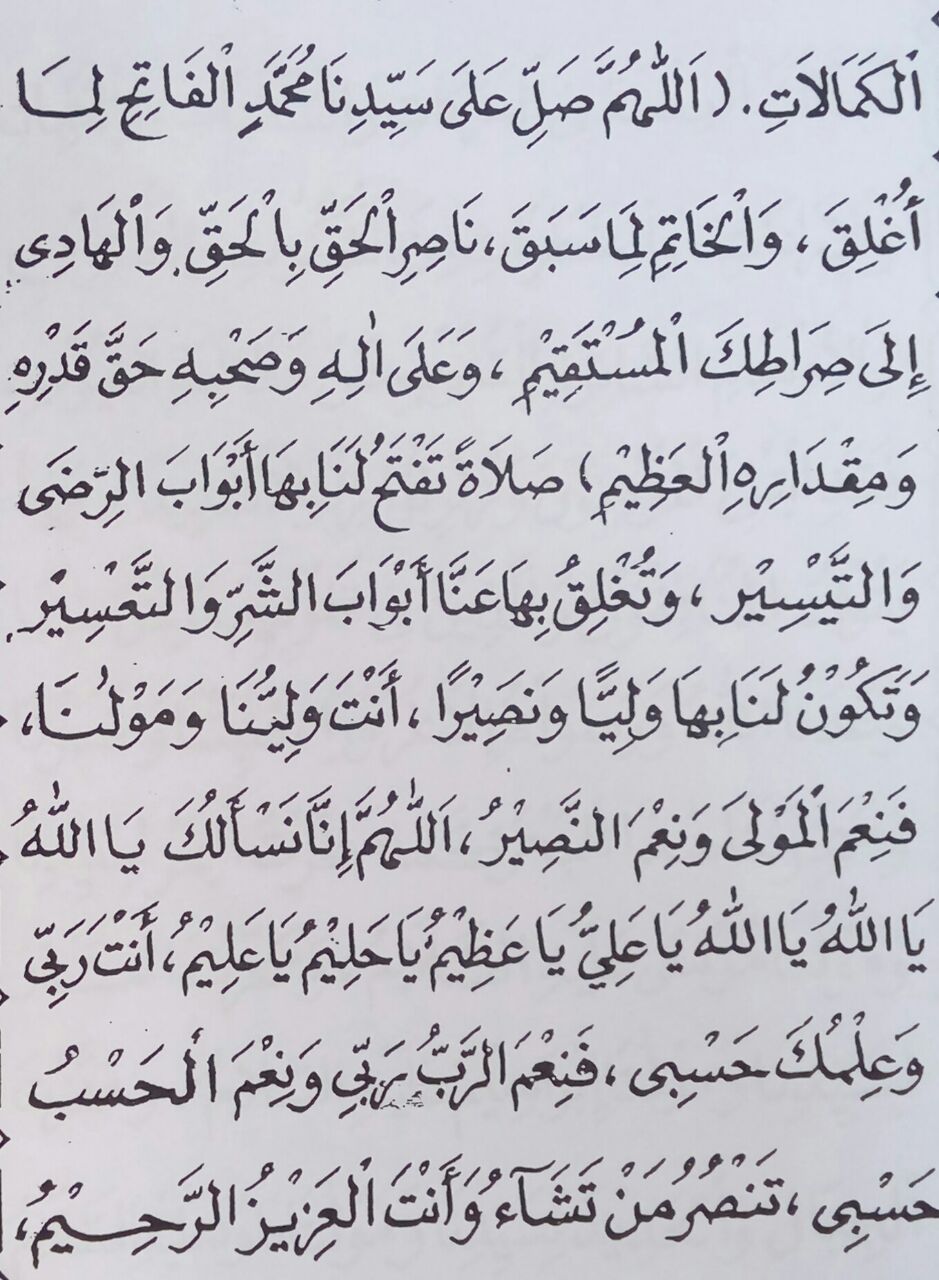 اَلْكَمَالَاتِ. (اَللّٰهُمَّ صَلِّ عَلَى سَيِّدِنَا مُحَمَّدٍ اَلْفَاتِحِ لِمَا
أُغْلِقَ ، وَالْخَاتِمِ لِمَا سَبَقَ، نَاصِرِ الْحَقِّ بِالْحَقِّ وَالْهَادِى
إِلَى صِرَاطِكَ الْمُسْتَقِيْمِ ، وَعَلَى اٰلِهِ وَصَحْبِهِ حَقَّ قَدْرِهِ
وَمِقْدَارِهِ الْعَظِيْمِ) صَلَاةً تَفْتَحُ لَنَا بِهَا أَبْوَابَ الرِّضَى
وَالتَّيْسِيْرِ ، وَتُغْلِقُ بِهَا عَنَّا أَبْوَابَ الشَّرِّ وَالتَّعْسِيْرِ
وَتَكُوْنُ لَنَا بِهَا وَلِيًّا وَنَصِيْرًا ، أَنْتَ وَلِيُّنَا وَمَوْلٰنَا،
فَنِعْمَ الْمَوْلَى وَنِعْمَ النَّصِيْرُ ، اَللّٰهُمَّ إِنَّا نَسْأَلُكَ يَا اَللّٰهُ
يَا اَللّٰهُ يَا اَللّٰهُ يَا عَلِيُّ يَا عَظِيْمُ يَا حَلِيْمُ يَا عَلِيْمُ، أَنْتَ رَبِّي
وَعِلْمُكَ حَسْبِى ، فَنِعْمَ الرَّبُّ رَبِّي وَنِعْمَ الْحَسْبُ
حَسْبِى ، تَنْصُرُ مَنْ تَشَآءُ وَأَنْتَ الْعَزِيْزُ الرَّحِيْمُ،